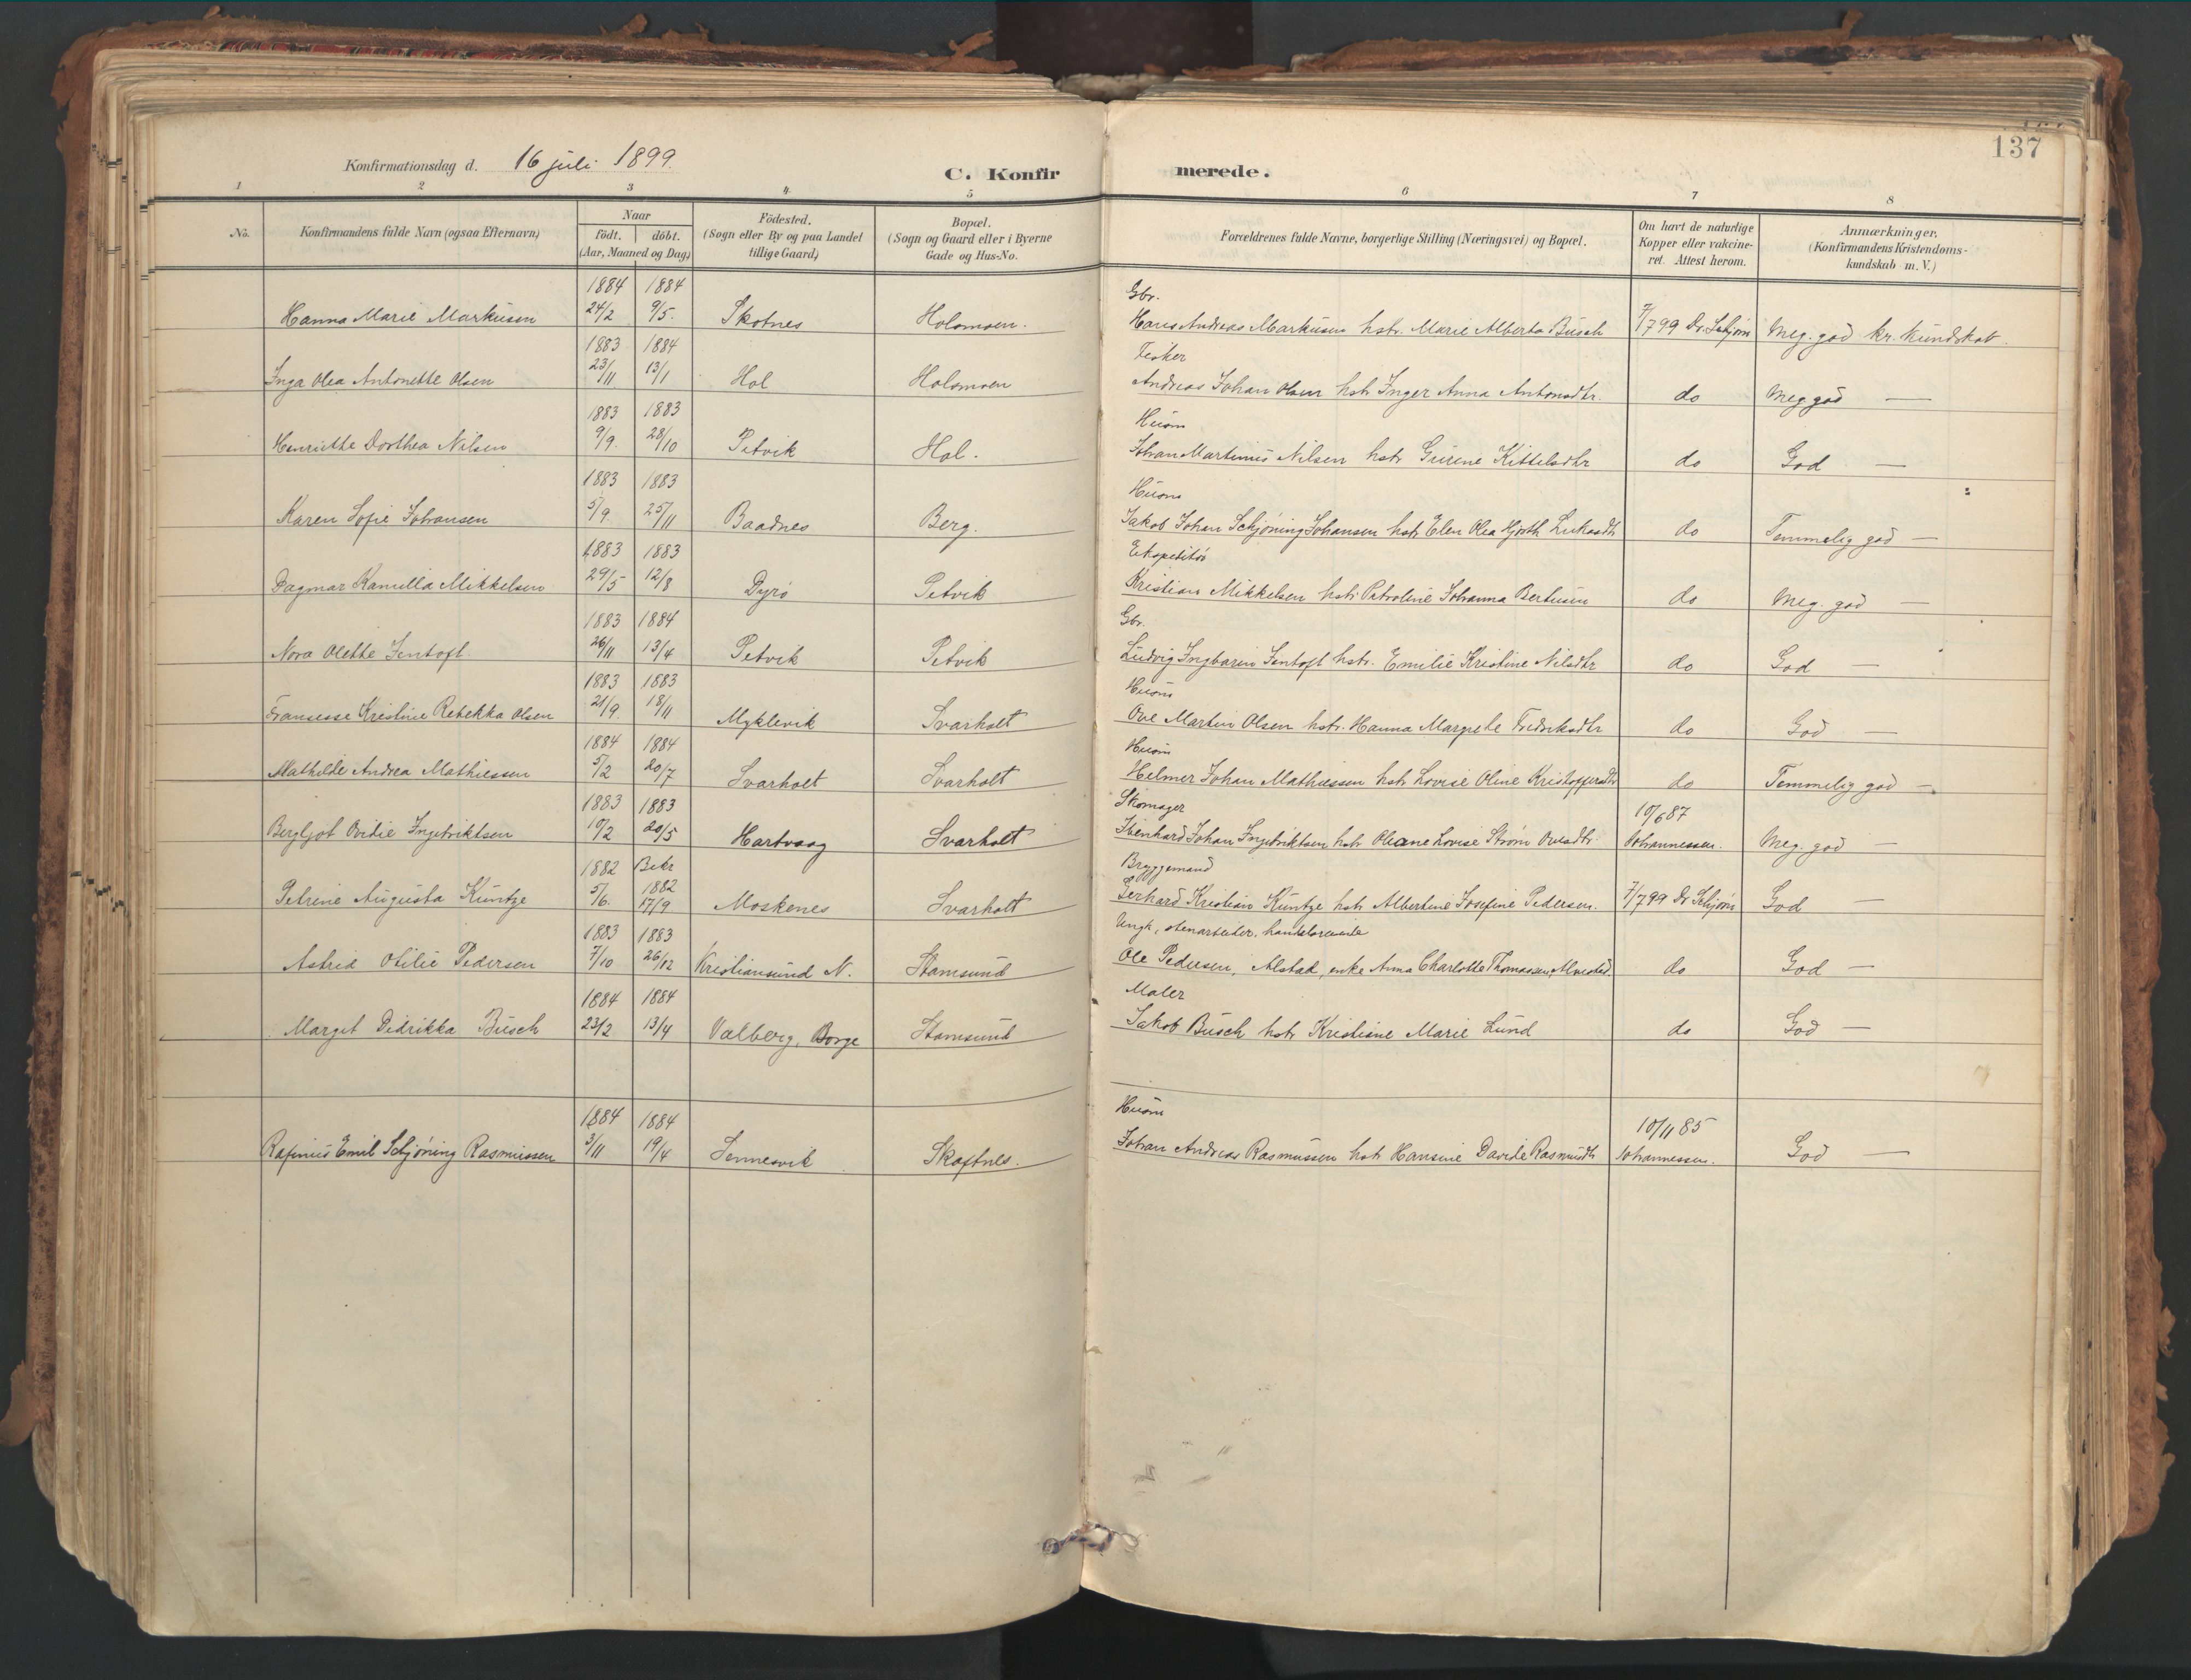 137
Konfirmationsdag d. 16 juli 1899.
C. Konfirmerede.
1 2 3 4 5 6 7 8
No. Konfirmandens fulde Navn (ogsaa Efternavn) Naar födt. döbt. (Aar, Maaned og Dag) Födested. (Sogn eller By og paa Landet tillige Gaard) Bopæl. (Sogn og Gaard eller i Byerne Gade og Hus-No. Forældrenes fulde Navne, borgerlige Stilling (Næringsvei) og Bopæl. Om havt de naturlige Kopper eller vakcineret. Attest herom. Anmærkninger. (Konfirmandens Kristendomskundskab m. V.)
1884 1884 Gbr.
Hanna Marie Markusen 24/2 9/5. Skotnes Holsmoen. Hans Andreas Markusen hstr. Marie Alberta Busch 7/7 99 Dr. Schjøn Meg. god kr. kundskab.
1883 1884 Fisker
Inga Olea Antonette Olsen 23/11 13/1 Hol Holsmoen Andreas Johan Olsen hstr Inger Anna Antonsdtr. do Meg god —
1883 1883 Husm
Henriette Dorthea Nilsen 9/9. 28/10 Petvik Hol. Johan Martinus Nilsen hstr Gurine Kittelsdtr do God —
1883 1883 Husm
Karen Sofie Johansen 5/9. 25/11 Baadnes Berg. Jakob Johan Schjøning Johansen hstr Elen Olea Hjorth Lukasdtr do Temmelig god —
1883 1883 Ekspeditør
Dagmar Kamilla Mikkelsen 29/5 12/8 Dyrø Petvik Kristian Mikkelsen hstr Petroline Johanna Bertusen do Meg. god —
1883 1884 Gbr.
Nora Olette Jentoft 26/11 13/4 Petvik Petvik Ludvig Ingbarin Jentoft hstr. Emilie Kristine Nilsdtr do God —
1883 1883 Husm
Fransesse Kristine Rebekka Olsen 21/9. 18/11 Myklevik Svarholt Ove Martin Olsen hstr. Hanna Margrete Fredriksdtr do God —
1884 1884 Husm
Mathilde Andrea Mathiessen 5/2 20/7 Svarholt Svarholt Helmer Johan Mathiessen hstr Lovise Oline Kristoffersdtr do Temmelig god —
1883 1883 Skomager 10/6 87
Bergljot Ovidie Ingebriktsen 10/2 20/5 Hartvaag Svarholt Ibenhard Johan Ingebriktsen hstr Oleane Lovise Strøm Ovesdtr. Johannessen. Meg. god —
1882 Bekr 1882 Bryggemand
Petrine Augusta Kuntze 5/6. 17/9 Moskenes Svarholt Gerhard Kristian Kuntze hstr Albertine Josefine Pedersen. 7/7 99 Dr Schjøn God —
1883 1883 Ungk, stenarbeider. handelsreisende
Astrid Otilie Pedersen 7/10 26/12 Kristiansund N. Stamsund Ole Pedersen, Alstad, enke Anna Charlotte Thomassen, do God —
1884 1884 Maler
Margit Didrikka Busch 23/2 13/4 Valberg, Borge Stamsund Jakob Busch hstr Kristiane Marie Lund do God —
1884 1884 Husm 10/11 85
Rafinus Emil Schjøning Rasmussen 3/11 19/4 Sennesvik Skaftnes. Johan Andreas Rasmussen hstr Hansine Davide Rasmusdtr Johannessen. God —